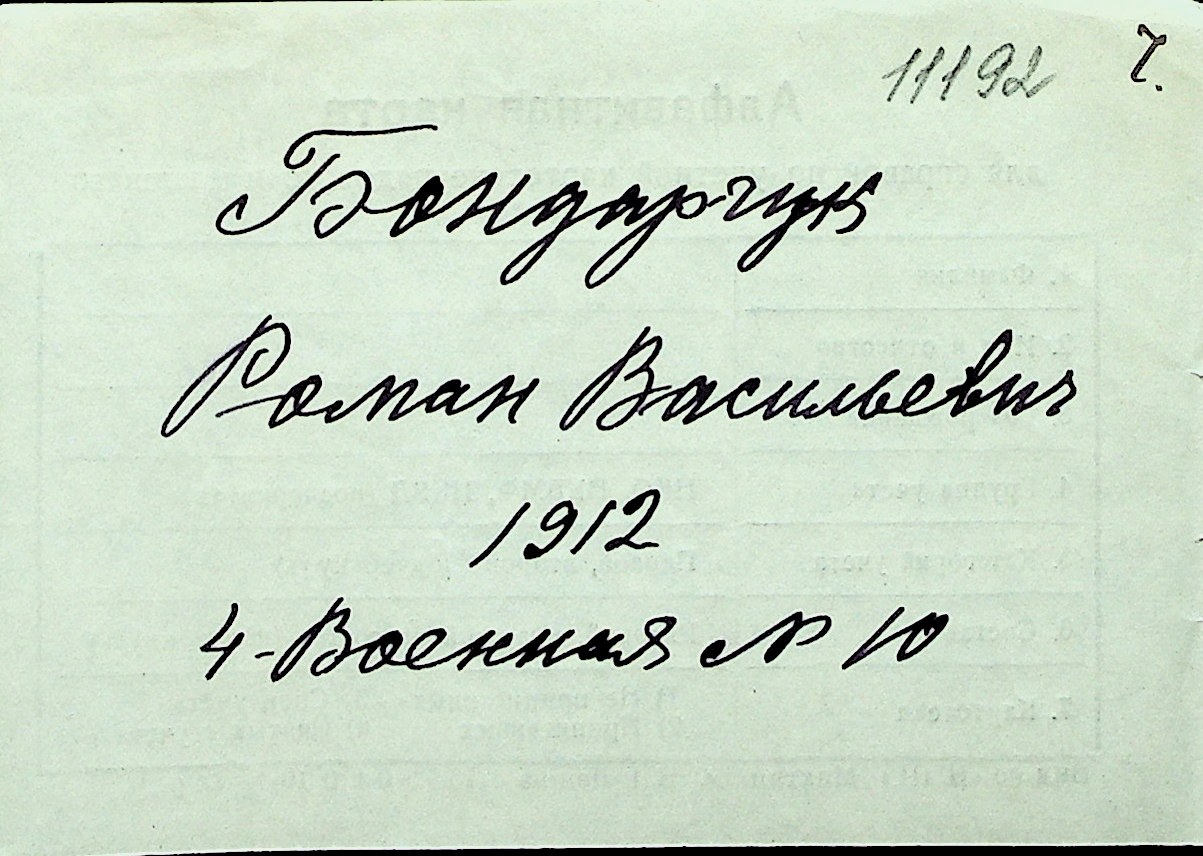 11192 7.
Бондарчук
Роман Васильевич
1912
4-Военная № 10